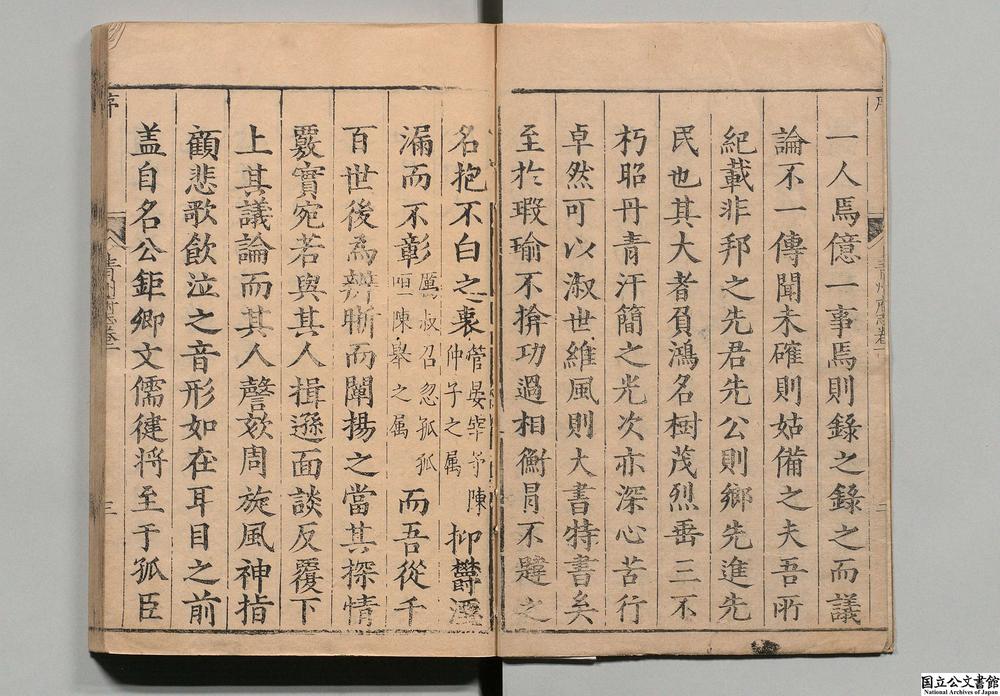 一人焉億一事焉則錄之錄之而議
論不一傳聞未確則姑備之夫吾所
紀載非邦之先君先公則鄉先進先
民也其大者負鴻名樹茂烈垂三不
朽昭丹青汗簡之光次亦深心苦行
卓然可以淑世維風則大書特書矣
至於瑕瑜不揜功過相衡冐不韙之
名抱不白之裏管晏宰予陳仲子之属抑欝湮
漏而不彰厲叔召忽狐咺陳舉之属而吾從千
百世後為辨晣而闡揚之當其探情
覈實宛若與其人揖遜面談反覆下
上其議論而其人謦欬周旋風神指
顧悲歌飲泣之音形如在耳目之前
盖自名公鉅鄉文儒健將至于孤臣
序
青州府志卷一
三
国立公文書館
National Archives of Japan